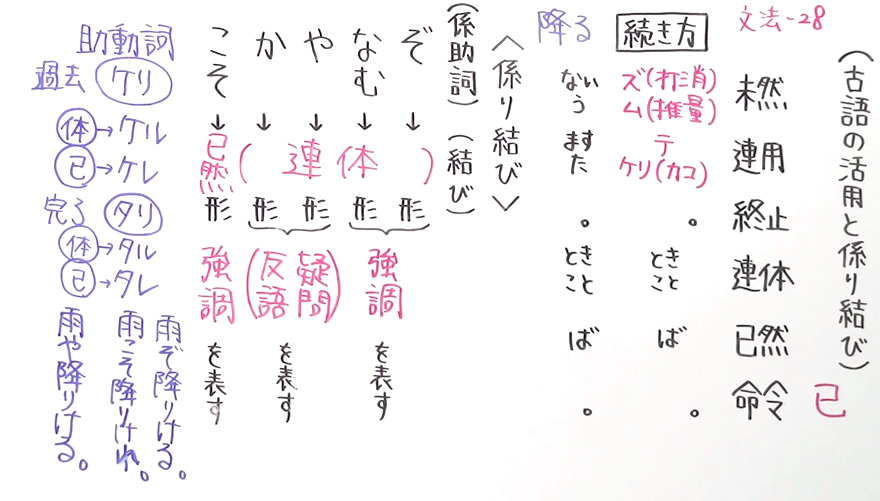 文法-28
(古語の活用と係り結び)
已
未然
連用
終止
連体
已然
命令
続き方
ズ(打消)
ム(推量)
テ
ケリ(カコ)
。
とき
こと
ば
。
降る
ない
う
ます
た
。
とき
こと
ば
。
〈係り結び〉
(係助詞)(結び)
ぞ
なむ
や
か
こそ
↓
↓
↓
↓
↓
(連体)
已然
形
形
形
形
形
強調
を表す
疑問
(反語)
を表す
強調
を表す
助動詞
過去 ケリ
体→ケル
已→ケレ
完了 タリ
体→タル
已→タレ
雨ぞ降りける。
雨こそ降りけれ。
雨や降りける。